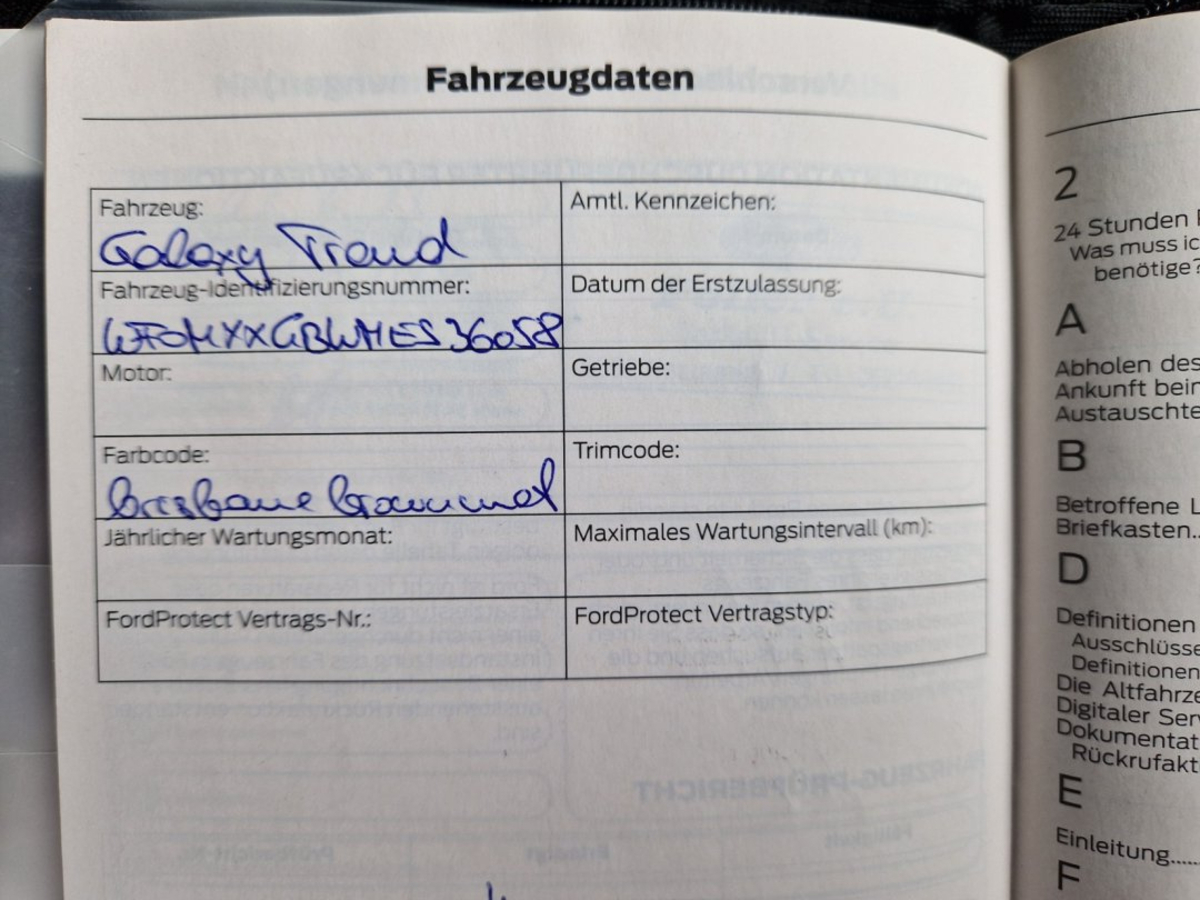 Fahrzeugdaten
Fahrzeug:
Galaxy Trend
Amtl. Kennzeichen:
Fahrzeug-Identifizierungsnummer:
WF0MXXGBWMES36058
Datum der Erstzulassung:
Motor:
Getriebe:
Farbcode:
Trimcode:
Jährlicher Wartungsmonat:
Maximales Wartungsintervall (km):
FordProtect Vertrags-Nr.:
FordProtect Vertragstyp:
FAHRZEUG-PRÜFBERICHT
2
24 Stunden
Was muss
benötige?
A
Abholen des
Ankunft beim
Austauschte
B
Betroffene L
Briefkasten..
D
Definitionen
Ausschlüsse
Definitionen
Die Altfahrze
Digitaler Serv
Dokumentat
Rückrufakt
E
Einleitung......
F